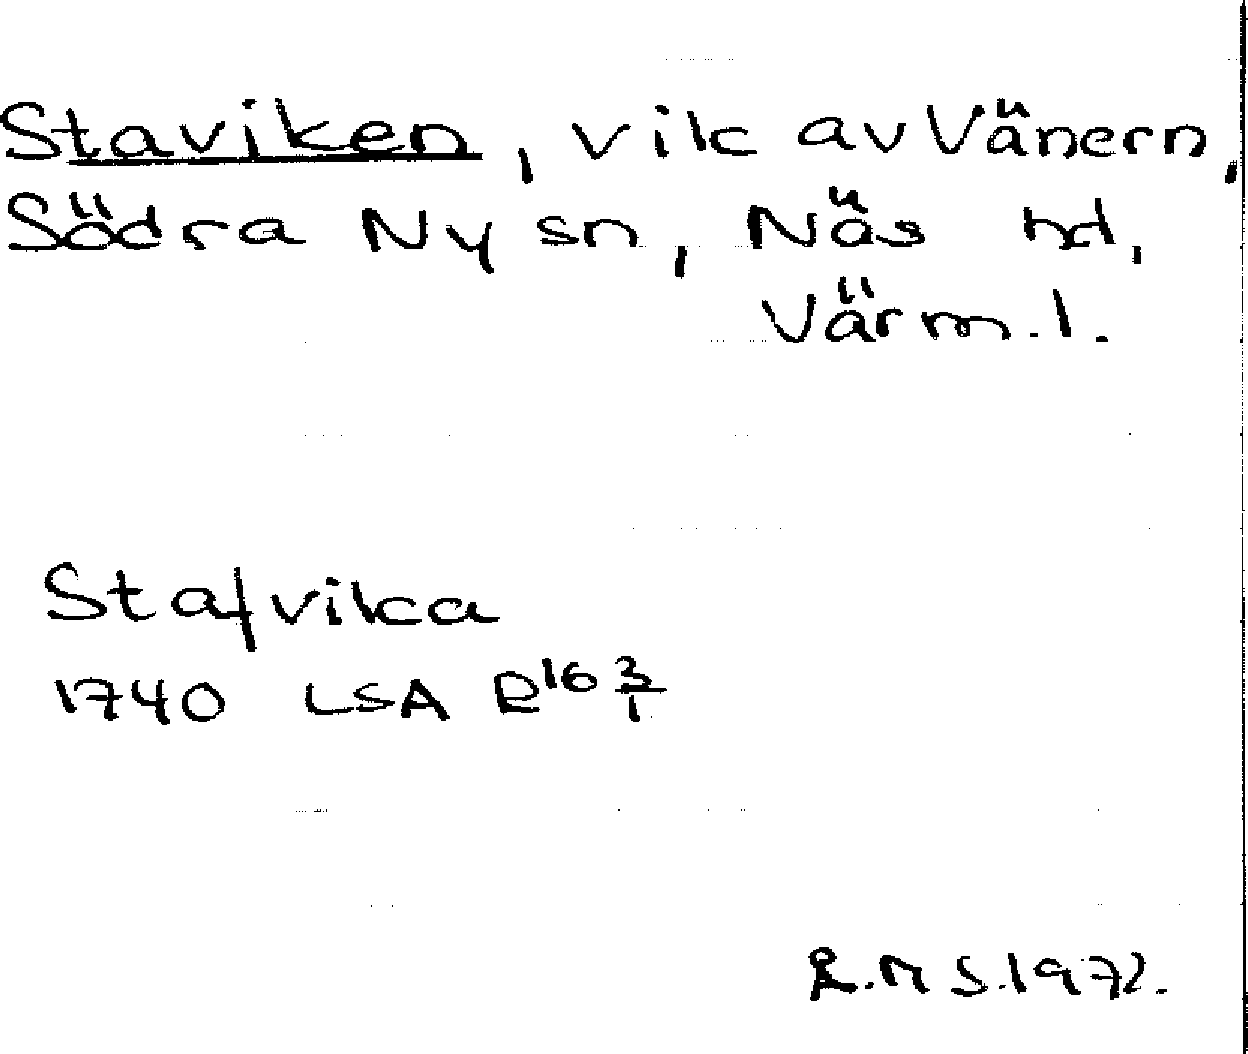 Staviken, vik av Vänern,
Södra Ny sn, Näs hd,
Värml.
Stafvika
1740 LSA R16 3/1
R.M S.1972.